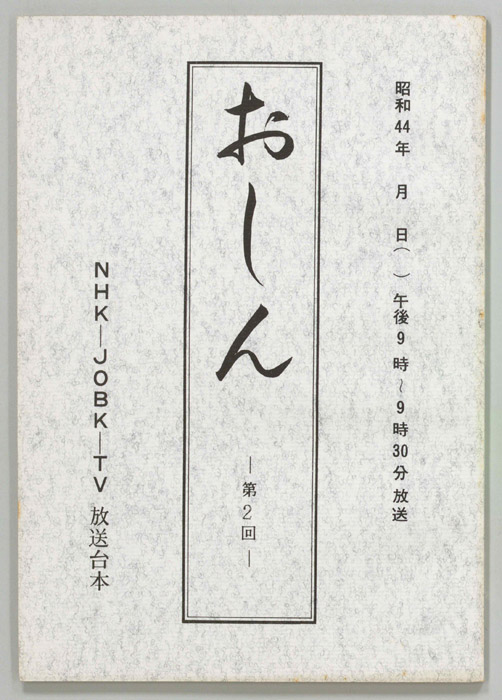 昭和44年　月　日(　)午後9時～9時30分放送
おしん
―第2回―
NHK―JOBK―TV 放送台本